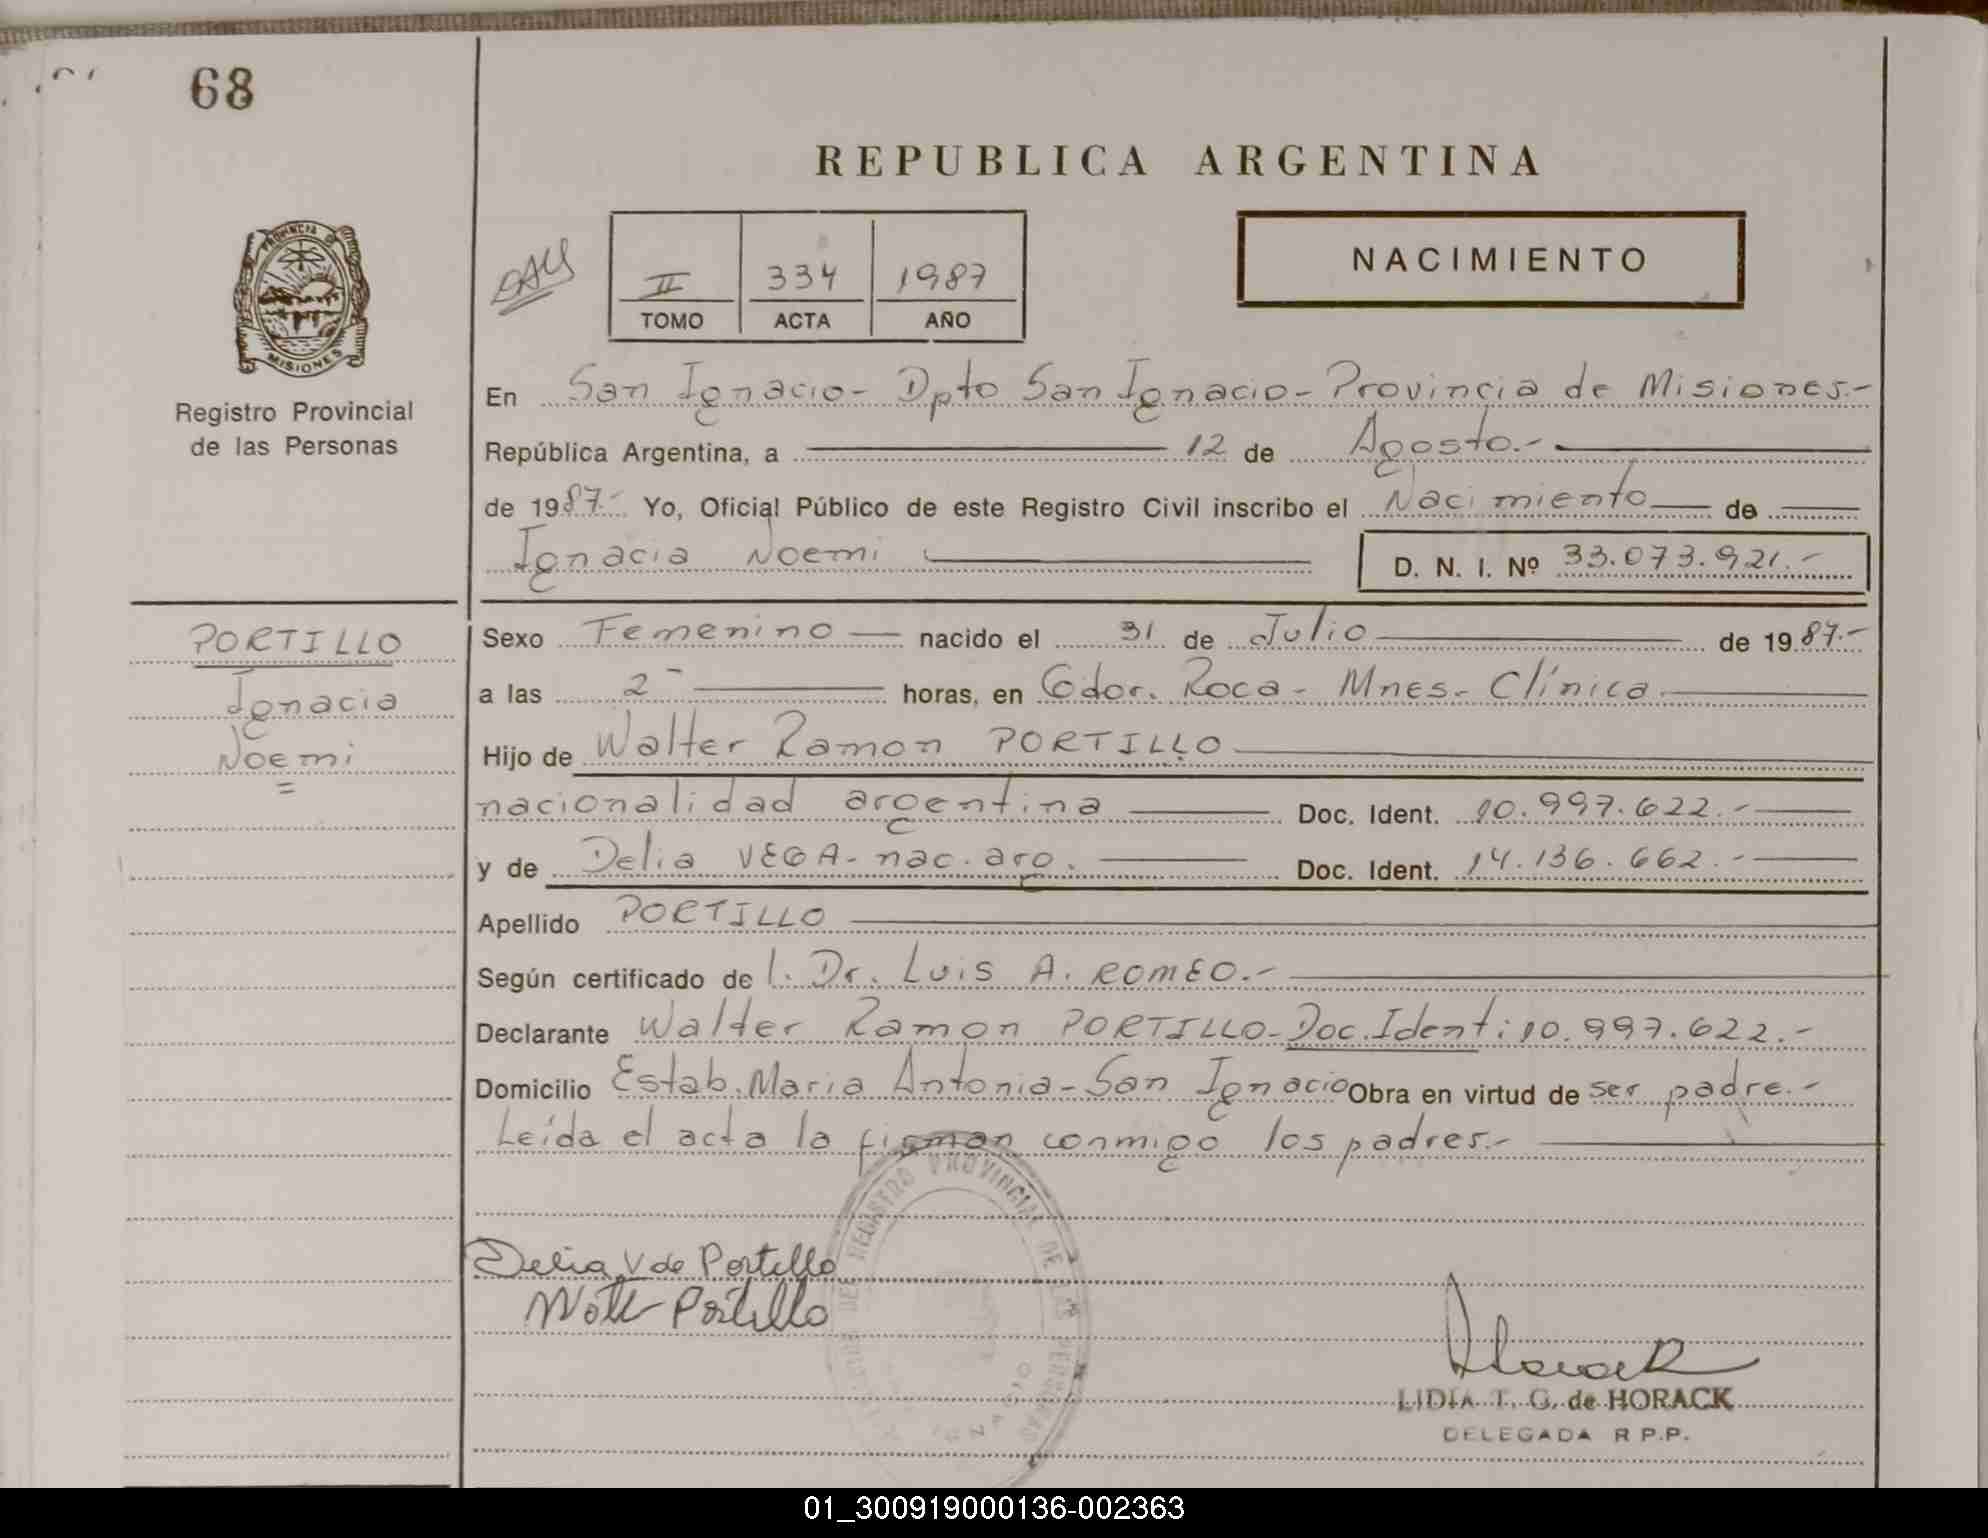 68
REPUBLICA ARGENTINA
PROVINCIA DE
MISIONES
Registro Provincial
de las Personas
II 334 1987
TOMO ACTA AÑO
NACIMIENTO
En San Ignacio - Dpto San Ignacio - Provincia de Misiones.-
República Argentina, a 12 de Agosto.-
de 1987.- Yo, Oficial Público de este Registro Civil inscribo el Nacimiento de
Ignacia Noemi D. N. I. Nº 33.073.921.-
PORTILLO
Ignacia
Noemi
Sexo Femenino nacido el 31 de Julio de 1987.-
a las 2 - horas, en Gdor. Roca - Mnes.- Clínica.
Hijo de Walter Ramon PORTILLO
nacionalidad argentina Doc. Ident. 10.997.622.-
y de Delia VEGA - nac. arg. Doc. Ident. 14.136.662.-
Apellido PORTILLO
Según certificado de l. Dr. Luis A. ROMEO.-
Declarante Walter Ramon PORTILLO - Doc. Ident: 10.997.622.-
Domicilio Estab. Maria Antonia - San Ignacio Obra en virtud de ser padre.-
Leída el acta la firman conmigo los padres.-
REGISTRO PROVINCIAL DE LAS PERSONAS
Delia V de Portillo
Portillo
Horack
LIDIA T. G. de HORACK
DELEGADA R P.P.
01_300919000136-002363